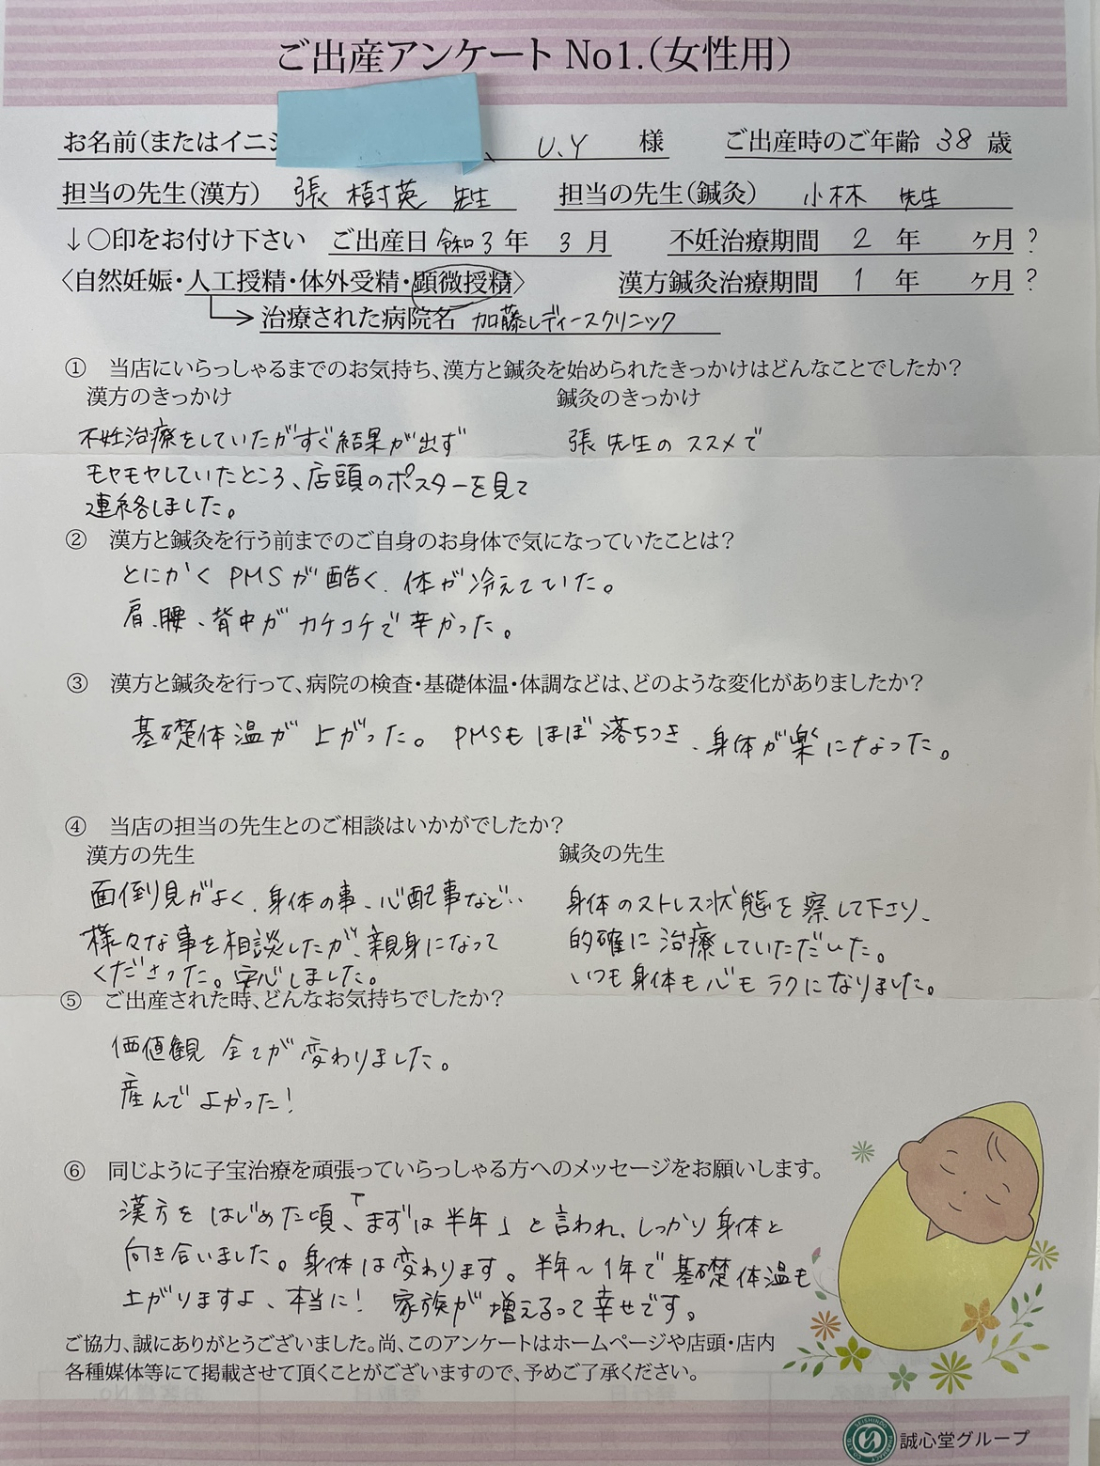 ご出産アンケート No1.(女性用)
お名前(またはイニシ U.Y 様 ご出産時のご年齢 38 歳
担当の先生(漢方) 張 樹英 先生 担当の先生(鍼灸) 小林 先生
↓○印をお付け下さい ご出産日 令和3年 3月 不妊治療期間 2年 ヶ月?
〈自然妊娠・人工授精・体外受精・顕微授精〉 漢方鍼灸治療期間 1年 ヶ月?
治療された病院名 加藤レディースクリニック
① 当店にいらっしゃるまでのお気持ち、漢方と鍼灸を始められたきっかけはどんなことでしたか?
漢方のきっかけ 鍼灸のきっかけ
不妊治療をしていたがすぐ結果が出ず 張先生のススメで
モヤモヤしていたところ、店頭のポスターを見て
連絡しました。
② 漢方と鍼灸を行う前までのご自身のお身体で気になっていたことは?
とにかくPMSが酷く、体が冷えていた。
肩、腰、背中がカチコチで辛かった。
③ 漢方と鍼灸を行って、病院の検査・基礎体温・体調などは、どのような変化がありましたか?
基礎体温が上がった。PMSもほぼ落ちつき、身体が楽になった。
④ 当店の担当の先生とのご相談はいかがでしたか?
漢方の先生 鍼灸の先生
面倒見がよく、身体の事、心配事など‥ 身体のストレス状態を察して下さり、
様々な事を相談したが、親身になって 的確に治療していただいた。
くださった。安心しました。 いつも身体も心もラクになりました。
⑤ ご出産された時、どんなお気持ちでしたか?
価値観 全てが変わりました。
産んでよかった!
⑥ 同じように子宝治療を頑張っていらっしゃる方へのメッセージをお願いします。
漢方をはじめた頃、「まずは半年」と言われ、しっかり身体と
向き合いました。身体は変わります。半年〜1年で基礎体温も
上がりますよ、本当に! 家族が増えるって幸せです。
ご協力、誠にありがとうございました。尚、このアンケートはホームページや店頭・店内
各種媒体等にて掲載させて頂くことがございますので、予めご了承ください。
誠心堂グループ